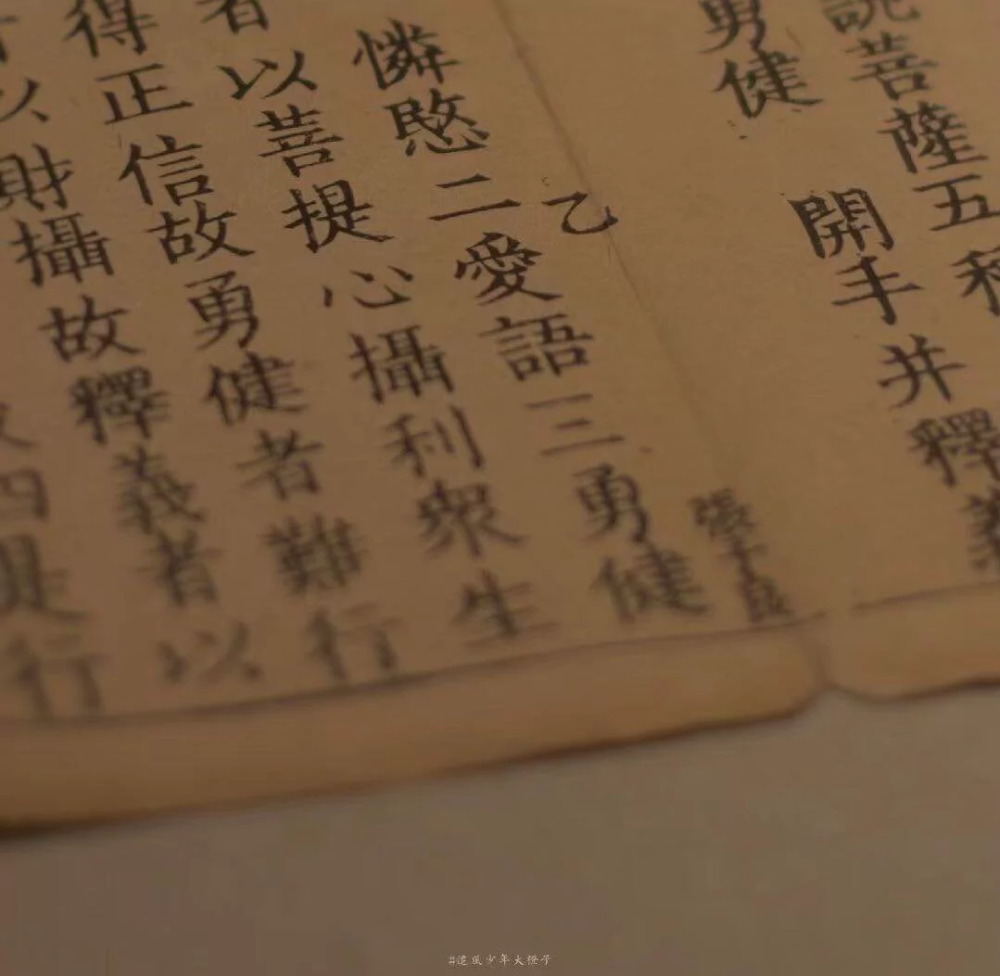 說菩薩五種
勇健　開手并釋義
乙
憐愍二愛語三勇健
者以菩提心攝利衆生
得正信故勇健者難行
以財攝故釋義者以
四
行
少年大橙子